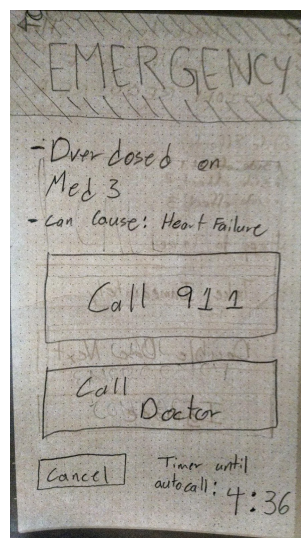 EMERGENCY
- Overdosed on
Med 3
- can cause: Heart Failure
Call 911
Call
Doctor
Cancel
Timer until
autocall:
4:36